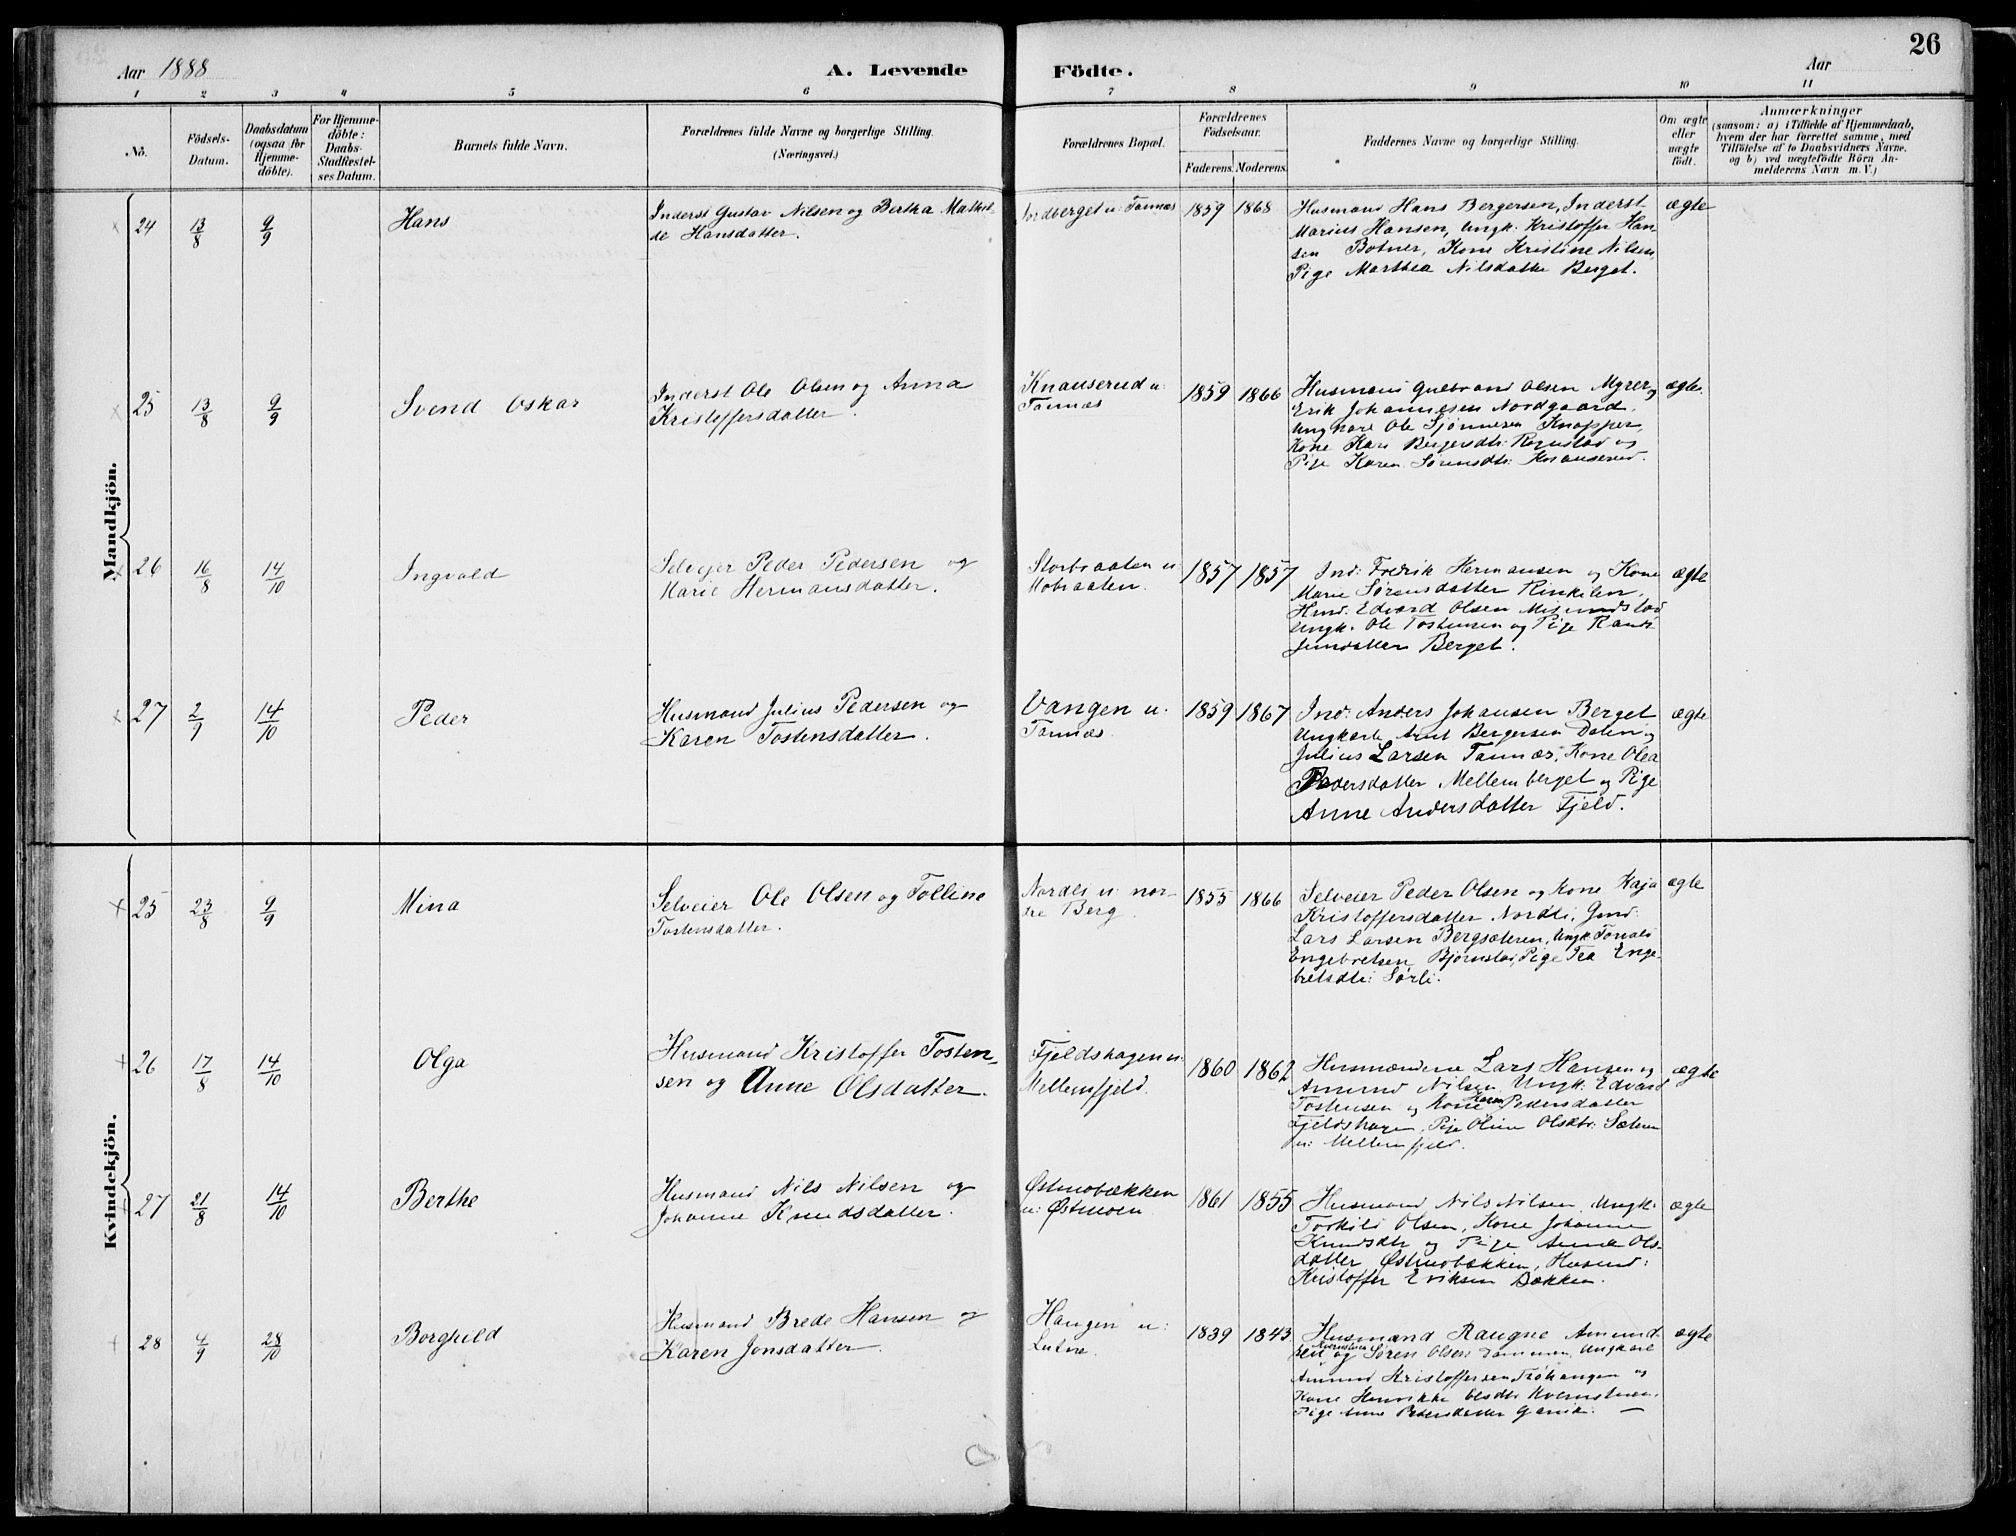 26
Aar 1888
A. Levende
Födte.
Aar
1 2 3 4 5 6 7 8 9 10 11
No.
Födsels-
Datum.
Daabsdatum
(ogsaa for
Hjemme-
döbte).
For Hjemme-
döbte:
Daabs-
Stadfæstel-
ses Datum.
Barnets fulde Navn.
Forældrenes fulde Navne og borgerlige Stilling.
(Næringsvei.)
Forældrenes Bopæl.
Forældrenes
Födselsaar.
Faderens. Moderens.
Faddernes Navne og borgerlige Stilling.
Om ægte
eller
uægte
födt.
Anmærkninger
(saasom: a) i Tilfælde af Hjemmedaab,
hvem der har forrettet samme, med
Tilföielse af to Daabsvidners Navne.
og b) ved uægtefödte Börn An-
melderens Navn m. V.)
Mandkjön.
24 13/8 9/9
Hans
Inderst Gustav Nilsen og Bertha Mathil-
de Hansdatter.
Nordberget u: Tannæs
1859 1868
Husmand Hans Bergersen, Inderst
Marius Hansen, Ungk. Kristoffer Han-
sen Botner, Kone Kristine Nilsen,
Pige Marthea Nilsdatter Berget.
ægte
25 13/8 9/9
Svend Oskar
Inderst Ole Olsen og Anna
Kristoffersdatter.
Knauserud u:
Tannæs
1859 1866
Husmand Gulbrand Olsen Myrer,
Erik Johannesen Nordgaard,
Ungkarl Ole Sjønnesen Knapper,
Kone Kari Bergersdtr: Rognstad og
Pige Karen Sørensdtr: Knauserud.
ægte.
26 16/8 14/10
Ingvald
Selvejer Peder Pedersen og
Marie Hermansdatter.
Storbraaten u:
Mobraaten.
1857 1857
Ind: Fredrik Hermansen og Kone
Marie Sørensdatter Rinkilen,
Edvard Olsen
Ungk. Ole Tostensen og Pige Randi
Berget.
ægte
27 2/9 14/10
Peder
Husmand Julius Pedersen og
Karen Tostensdatter.
Vangen u:
Tannæs.
1859 1867
Ind: Anders Johansen Berget
Ungkarle Arnt Bergersen Dalen og
Julius Larsen Tannæs, Kone Olea
Pedersdatter Mellemberget og Pige
Anne Andersdatter Fjeld.
ægte
Kvindekjön.
25 23/8 9/9
Mina
Selveier Ole Olsen og Tolline
Tostensdatter.
Nordli u: nor-
dre Berg.
1855 1866
Selveier Peder Olsen og Kone Kaja
Kristoffersdatter Nordli, Gmd:
Lars Larsen Bergsæteren, Ungk
Engebretsen Bjørnstad, Pige Tea Enge-
bretsdtr: Sørli.
ægte
26 17/8 14/10
Olga
Husmand Kristoffer Tosten-
sen og Anne Olsdatter.
Fjeldshagen u:
Mellemfjeld.
1860 1862
Husmændene Lars Hansen og
Amund Nilsen, Ungk: Edvard
Tostensen og Kone Karen Pedersdatter
Fjeldshagen, Pige Oline Olsdtr: Sæteren
u: Mellemfjeld.
ægte
27 21/8 14/10
Berthe
Husmand Nils Nilsen og
Johanne Knudsdatter.
Østmobækken
u: Østmoen.
1861 1855
Husmand Nils Nilsen, Ungk:
Torkild Olsen, Kone Johanne
Knudsdtr og Pige Anne Ols-
datter Østmobækken, Husmd:
Kristoffer Eriksen Bækken.
ægte
28 4/9 28/10
Borghild
Husmand Brede Hansen og
Karen Jonsdatter.
Haugen u:
Lutne.
1839 1843.
Husmænd Raugne Amund-
sen Kvernstuen og Søren Olsen Dammen, Ungkarl
Amund Kristoffersen og
Kone Henrikke Olsdtr Kvernstuen,
Pige Anne Pedersdatter
ægte